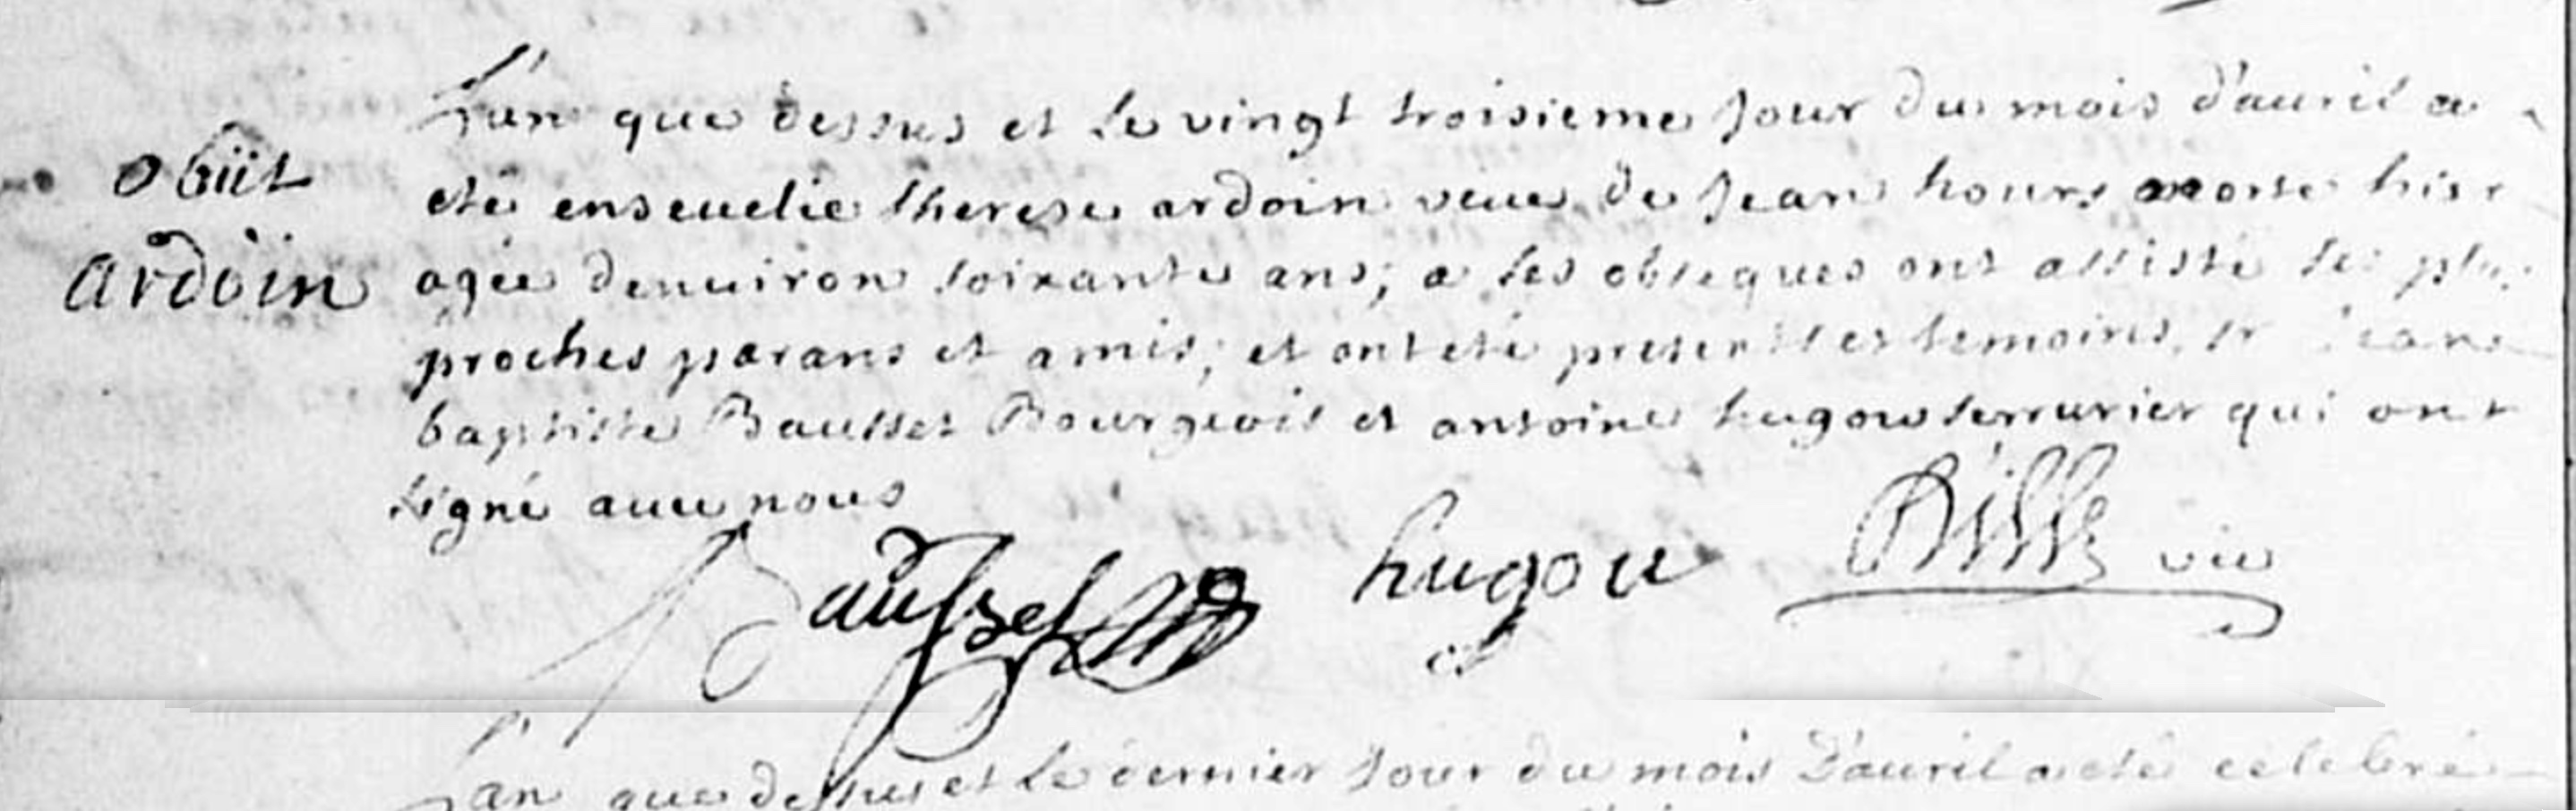 L'an que dessus et le vingt troisieme Jour du mois d'auril a
obiit
eté enseuelie therese ardoin veue de Jean hours morte hier
ardoin
agée denuiron soixante ans; a ses obseques ont assisté ses plus
proches parans et amis; et ont eté presents les temoins, sr Jean
baptiste Bausset Bourgeois et antoine hugou serrurier qui ont
signé auec nous
Bausset hugou Bille vic
L'an que dessus et le dernier Jour du mois D'auril a eté celebré